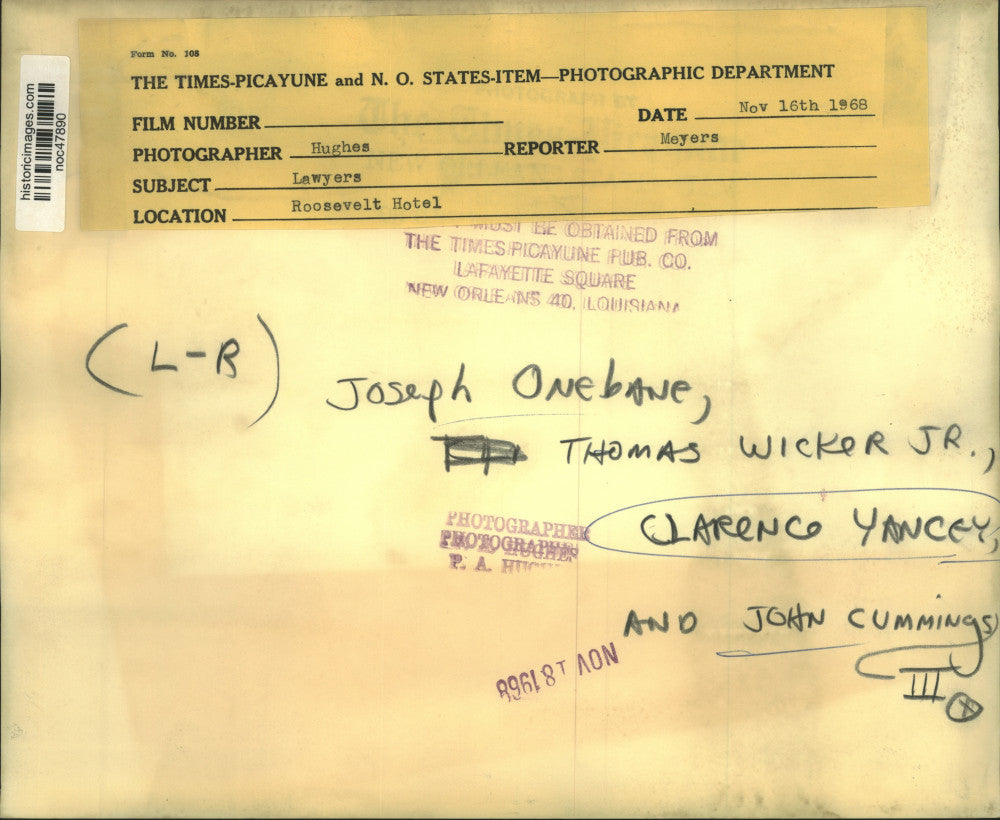 Form No. 108
THE TIMES-PICAYUNE and N. O. STATES-ITEM—PHOTOGRAPHIC DEPARTMENT
FILM NUMBER
DATE Nov 16th 1968
PHOTOGRAPHER Hughes REPORTER Meyers
SUBJECT Lawyers
LOCATION Roosevelt Hotel
historicimages.com
noc47890
MUST BE OBTAINED FROM
THE TIMES-PICAYUNE PUB. CO.
LAFAYETTE SQUARE
NEW ORLEANS 40, LOUISIANA
(L-R)
Joseph Onebane,
THOMAS WICKER JR.,
CLARENCE YANCEY,
AND JOHN CUMMINGS
III
PHOTOGRAPHER
PHOTOGRAPHER
P. A. HUGHES
NOV 18 1968